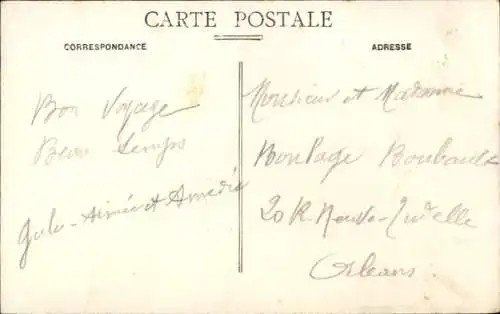 CARTE POSTALE
CORRESPONDANCE
ADRESSE
Bon Voyage
Beau temps
Aimée et Amédée
Monsieur et Madame
Bon Page
20 R. Neuve
Orleans